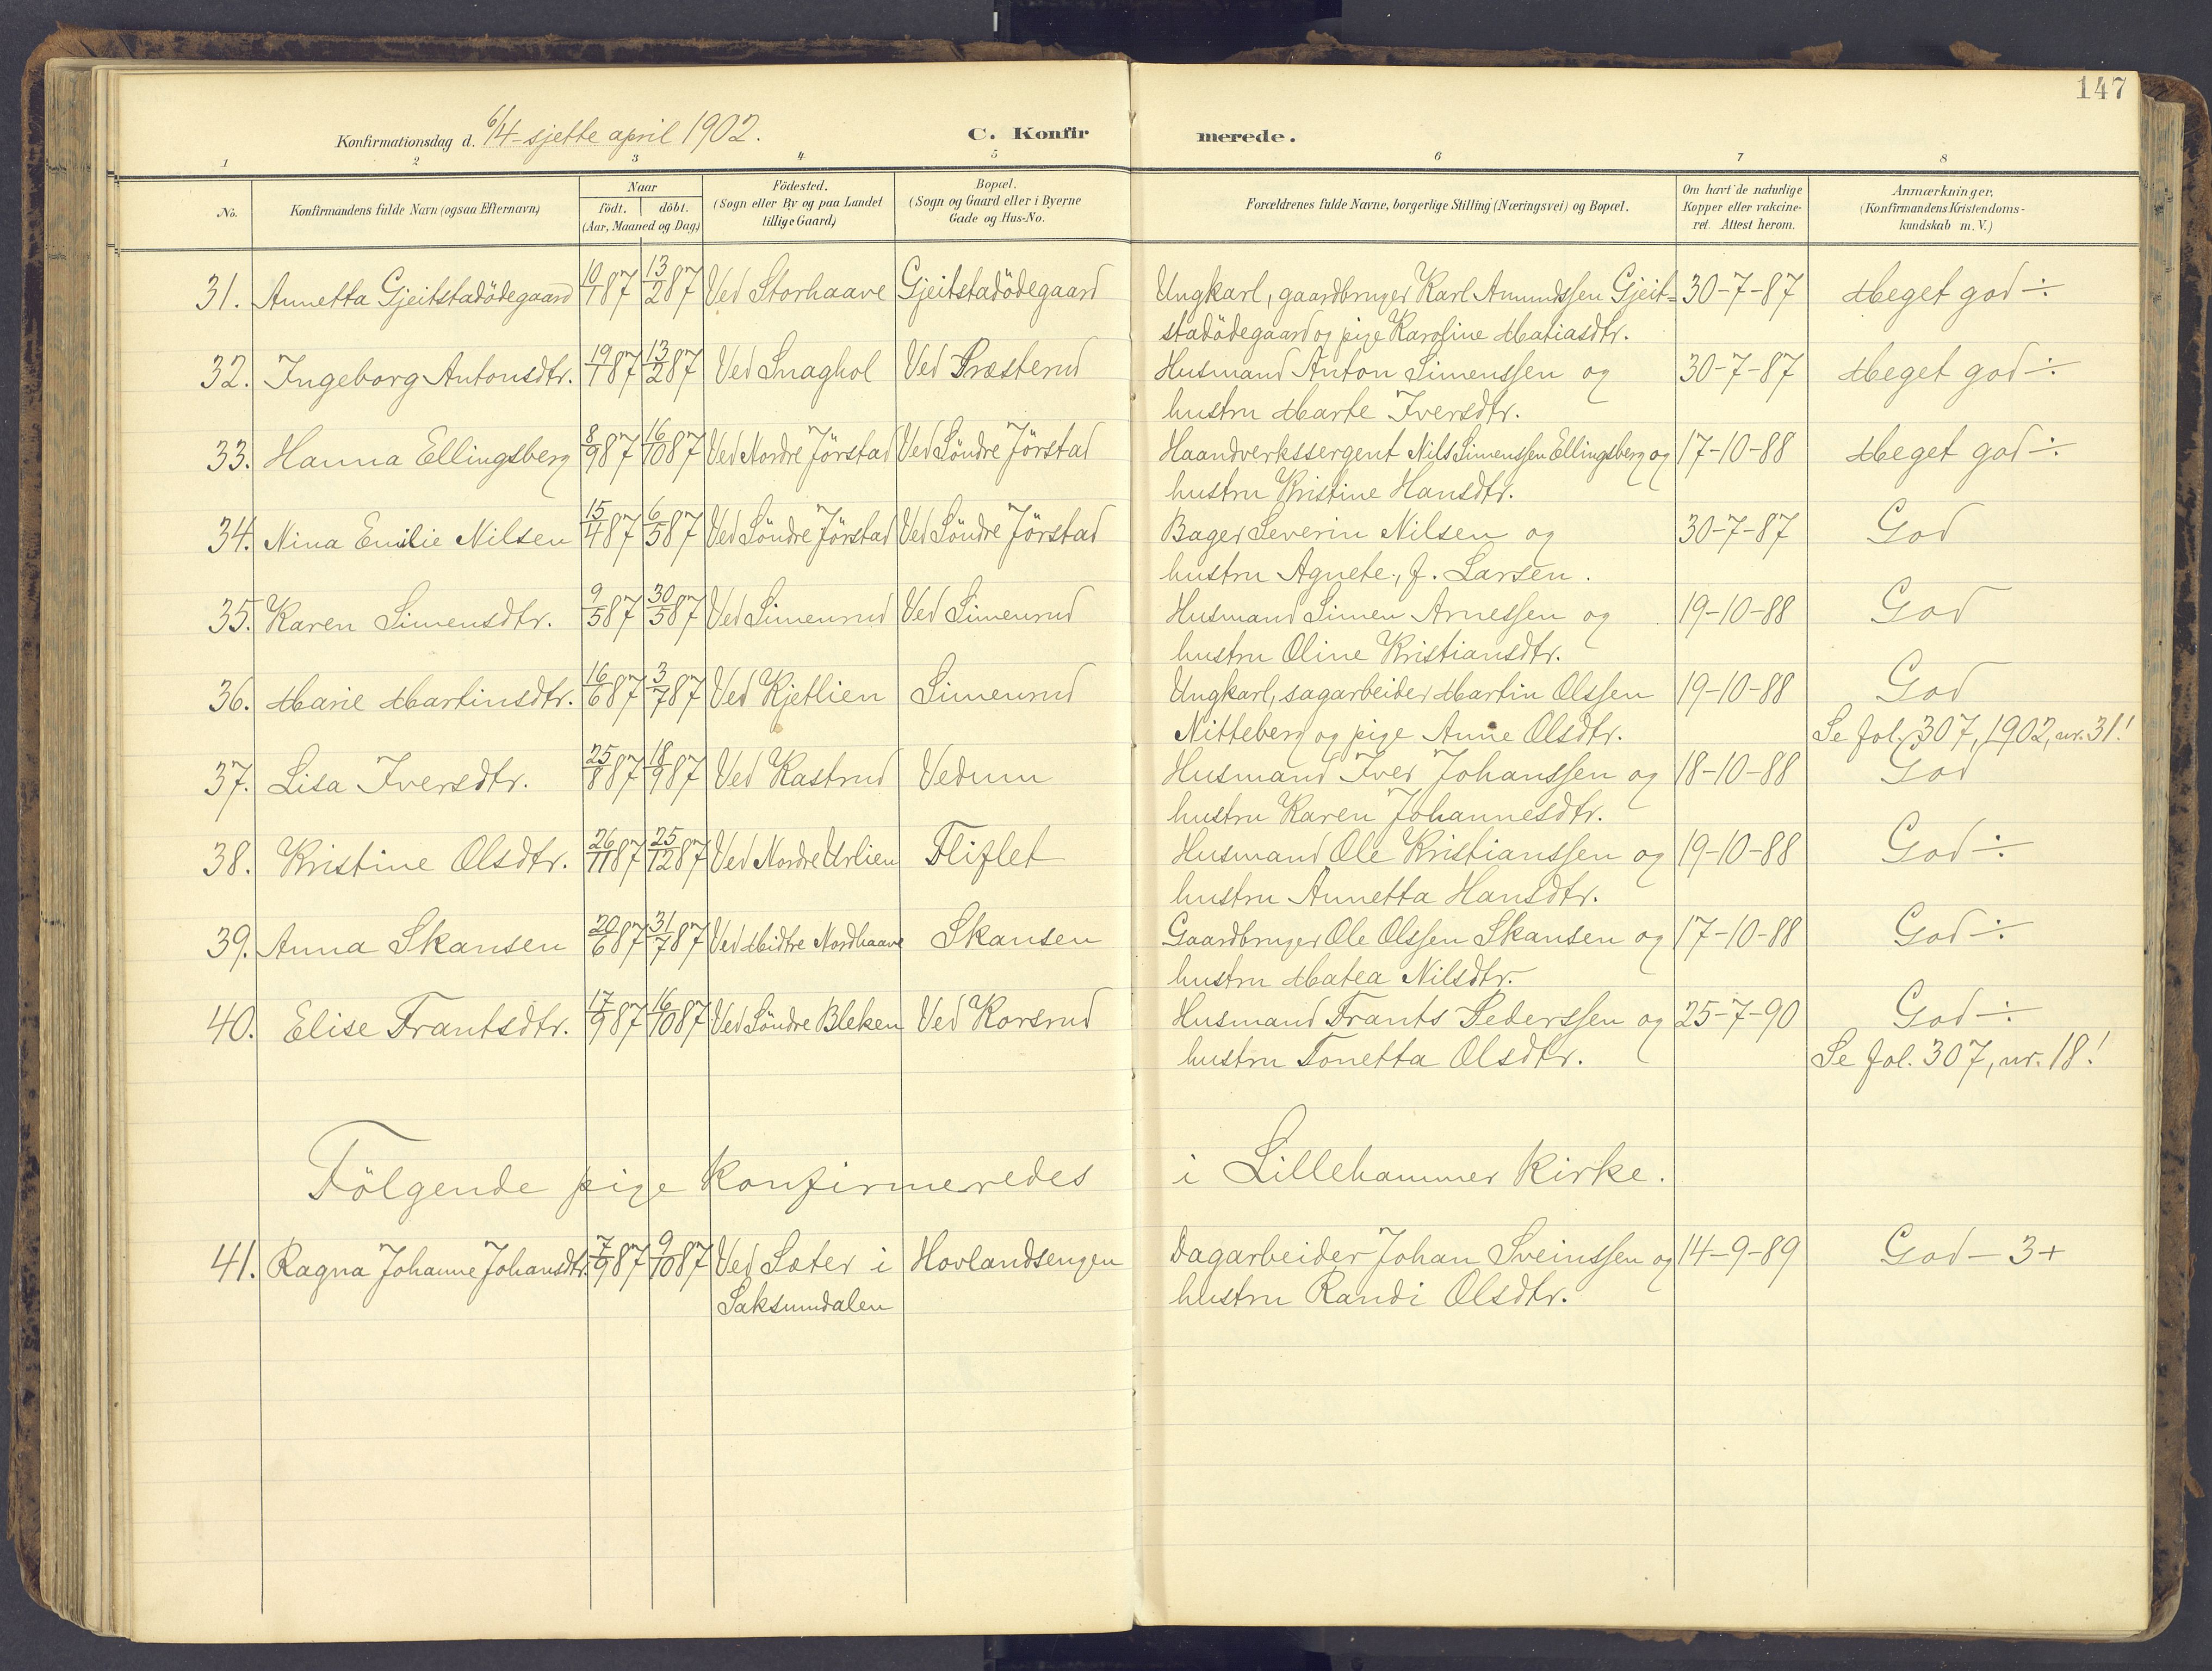 147
Konfirmationsdag d. 6/4 - sjette april 1902. C. Konfirmerede.
1 2 3 4 5 6 7 8
No. Konfirmandens fulde Navn (ogsaa Efternavn) Naar födt. döbt. (Aar, Maaned og Dag) Födested. (Sogn eller By og paa Landet tillige Gaard) Bopæl. (Sogn og Gaard eller i Byerne Gade og Hus-No. Forældrenes fulde Navne, borgerlige Stilling (Næringsvei) og Bopæl. Om havt de naturlige Kopper eller vakcineret. Attest herom. Anmærkninger. (Konfirmandens Kristendomskundskab m. V.)
31. Annetta Gjeitstadödegaard 10/1 87 13/2 87 Ved Storhaave Gjeitstadödegaard Ungkarl, gaardbruger Karl Amundssen Gjeit= 30-7-87 Meget god ÷
stadödegaard og pige Karoline Matiasdtr.
32. Ingeborg Antonsdtr. 19/1 87 13/2 87 Ved Snaghol Ved Præsterud Husmand Anton Simenssen og 30-7-87 Meget god ÷
hustru Marte Iversdtr.
33. Hanna Ellingsberg 8/9 87 16/10 87 Ved Nordre Jörstad Ved Söndre Jörstad Haandverkssergent Nils Simenssen Ellingsberg og 17-10-88 Meget god ÷
hustru Kristine Hansdtr.
34. Nina Emilie Nilsen 15/4 87 6/5 87 Ved Söndre Jörstad Ved Söndre Jörstad Bager Severin Nilsen og 30-7-87 God
hustru Agnete, f. Larsen.
35. Karen Simensdtr. 9/5 87 30/5 87 Ved Simenrud Ved Simenrud Husmand Simen Arnessen og 19-10-88 God
hustru Oline Kristiansdtr.
36. Marie Martinsdtr. 16/6 87 3/7 87 Ved Kjetlien Simenrud Ungkarl, sagarbeider Martin Olssen 19-10-88 God
Nitteberg og pige Anne Olsdtr. Se fol. 307, 1902, nr. 31!
37. Lisa Iversdtr. 25/8 87 18/9 87 Ved Kastrud Vedum Husmand Iver Johanssen og 18-10-88 God
hustru Karen Johannesdtr.
38. Kristine Olsdtr. 26/11 87 25/12 87 Ved Nordre Urlien Fliflet Husmand Ole Kristianssen og 19-10-88 God ÷
hustru Annetta Hansdtr.
39. Anna Skansen 20/6 87 31/7 87 Ved Midtre Nordhaave Skansen Gaardbruger Ole Olssen Skansen og 17-10-88 God ÷
hustru Matea Nilsdtr.
40. Elise Frantsdtr. 17/9 87 16/10 87 Ved Söndre Bleken Ved Korsrud Husmand Frants Pederssen og 25-7-90 God ÷
hustru Tonetta Olsdtr. Se fol. 307, nr. 18!
Fölgende pige konfirmeredes i Lillehammer kirke.
41. Ragna Johanne Johansdtr. 7/9 87 9/10 87 Ved Sæter i Hovlandsengen Dagarbeider Johan Sveinssen og 14-9-89 God - 3+
Saksumdalen hustru Randi Olsdtr.